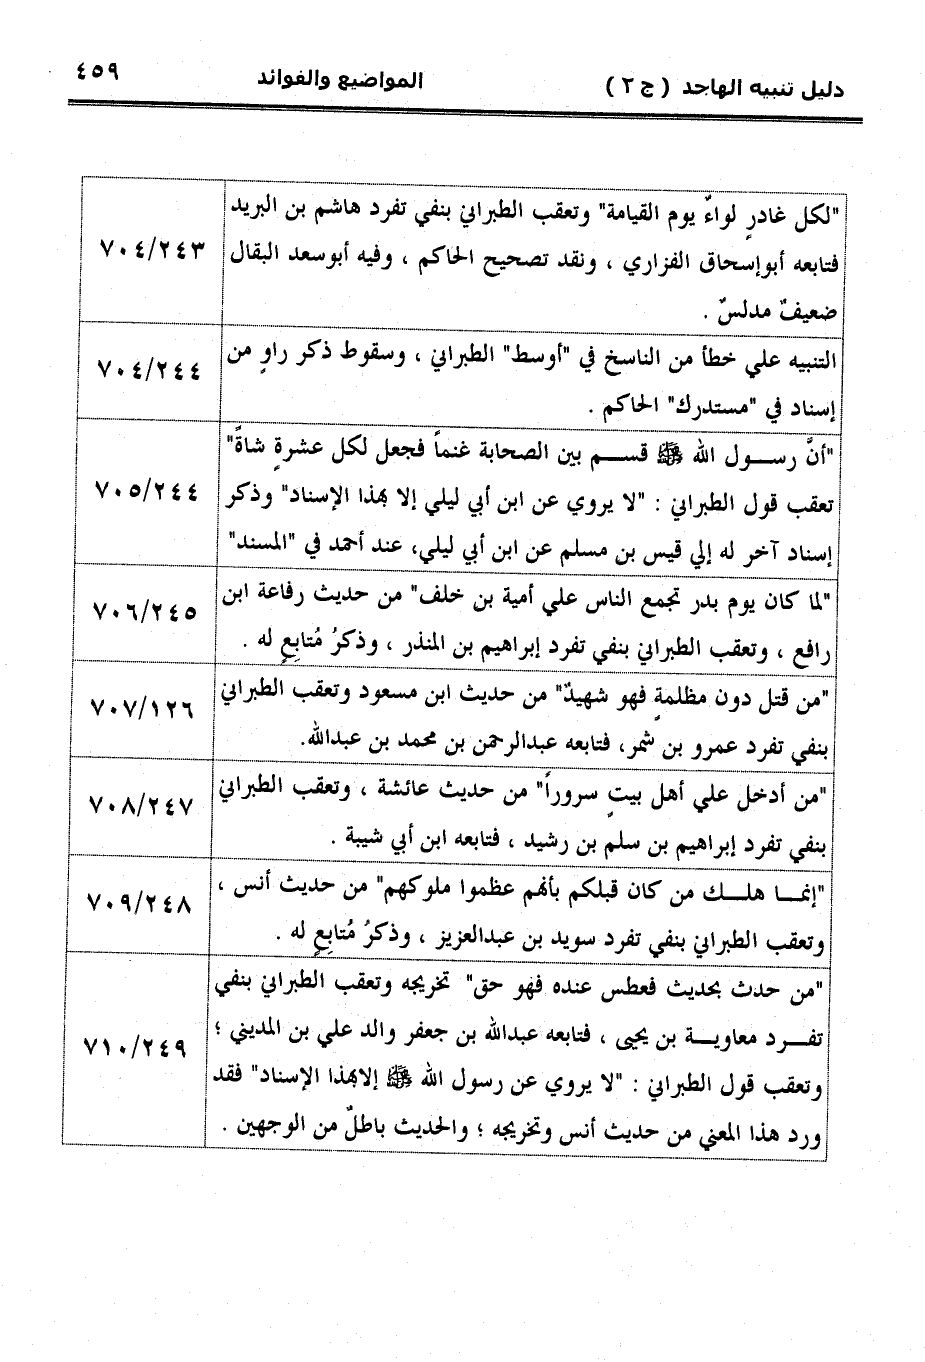 دليل تنبيه الهاجد ( ج ٢ ) المواضيع والفوائد ٤٥٩
"لكل غادرٍ لواءٌ يوم القيامة" وتعقب الطبراني بنفي تفرد هاشم بن البريد
فتابعه أبوإسحاق الفزاري ، ونقد تصحيح الحاكم ، وفيه أبوسعد البقال
ضعيفٌ مدلسٌ .
٧٠٤/٢٤٣
التنبيه علي خطأ من الناسخ في "أوسط" الطبراني ، وسقوط ذكر راوٍ من
إسناد في "مستدرك" الحاكم .
٧٠٤/٢٤٤
"أنَّ رسول الله ﷺ قسم بين الصحابة غنماً فجعل لكل عشرةٍ شاةً"
تعقب قول الطبراني : "لا يروي عن ابن أبي ليلي إلا بهذا الإسناد" وذكر
إسناد آخر له إلي قيس بن مسلم عن ابن أبي ليلي، عند أحمد في "المسند"
٧٠٥/٢٤٤
"لما كان يوم بدر تجمع الناس علي أمية بن خلف" من حديث رفاعة ابن
رافع ، وتعقب الطبراني بنفي تفرد إبراهيم بن المنذر ، وذكرُ مُتابِعٍ له .
٧٠٦/٢٤٥
"من قتل دون مظلمةٍ فهو شهيدٌ" من حديث ابن مسعود وتعقب الطبراني
بنفي تفرد عمرو بن شمر، فتابعه عبدالرحمن بن محمد بن عبدالله.
٧٠٧/١٢٦
"من أدخل علي أهل بيتٍ سروراً" من حديث عائشة ، وتعقب الطبراني
بنفي تفرد إبراهيم بن سلم بن رشيد ، فتابعه ابن أبي شيبة .
٧٠٨/٢٤٧
"إنما هلك من كان قبلكم بأنهم عظموا ملوكهم" من حديث أنس ،
وتعقب الطبراني بنفي تفرد سويد بن عبدالعزيز ، وذكرُ مُتابِعٍ له .
٧٠٩/٢٤٨
"من حدث بحديث فعطس عنده فهو حق" تخريجه وتعقب الطبراني بنفي
تفرد معاوية بن يحيى ، فتابعه عبدالله بن جعفر والد علي بن المديني ؛
وتعقب قول الطبراني : "لا يروي عن رسول الله ﷺ إلابهذا الإسناد" فقد
ورد هذا المعني من حديث أنس وتخريجه ؛ والحديث باطلٌ من الوجهين .
٧١٠/٢٤٩